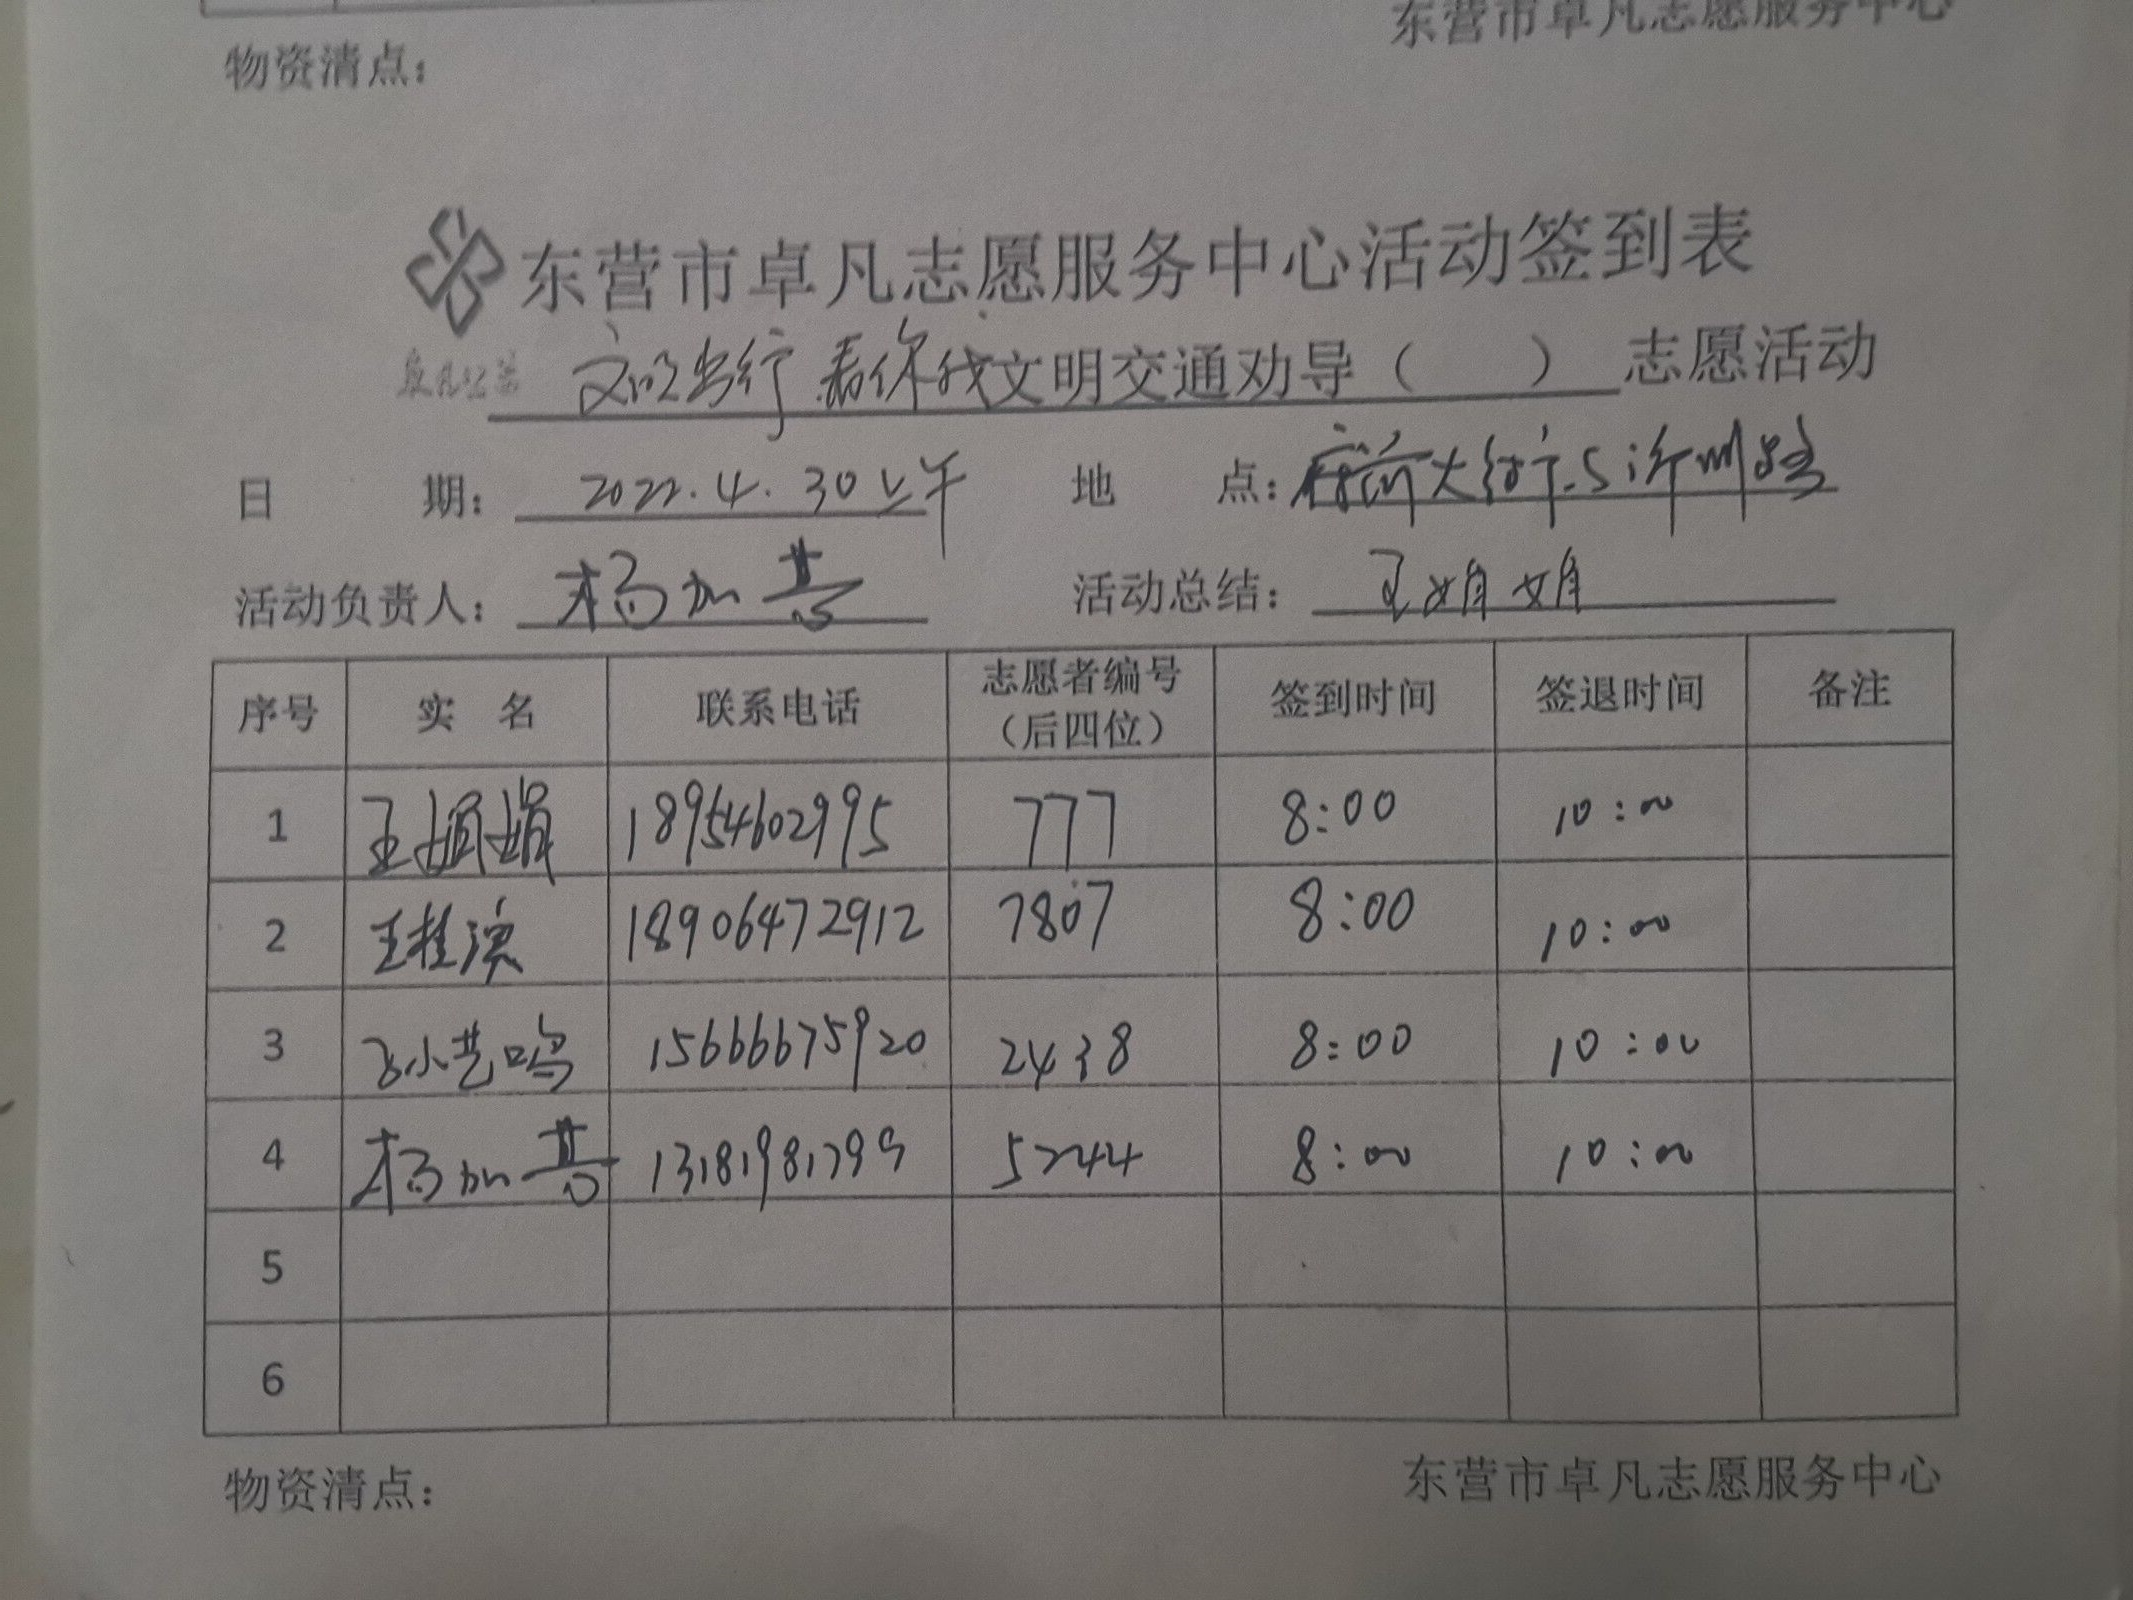 东营市卓凡志愿服务中心
物资清点：
东营市卓凡志愿服务中心活动签到表
文明出行 看你我文明交通劝导（ ）志愿活动
日 期： 2022.4.30上午 地 点：府前大街与沂州路
活动负责人： 杨加 活动总结： 王娟娟
序号 实 名 联系电话 志愿者编号（后四位） 签到时间 签退时间 备注
1 王娟娟 18954602995 777 8:00 10:00
2 王桂滨 18906472912 7807 8:00 10:00
3 飞小艺鸣 15666675920 2438 8:00 10:00
4 杨加 13181981799 5244 8:00 10:00
5
6
物资清点：
东营市卓凡志愿服务中心